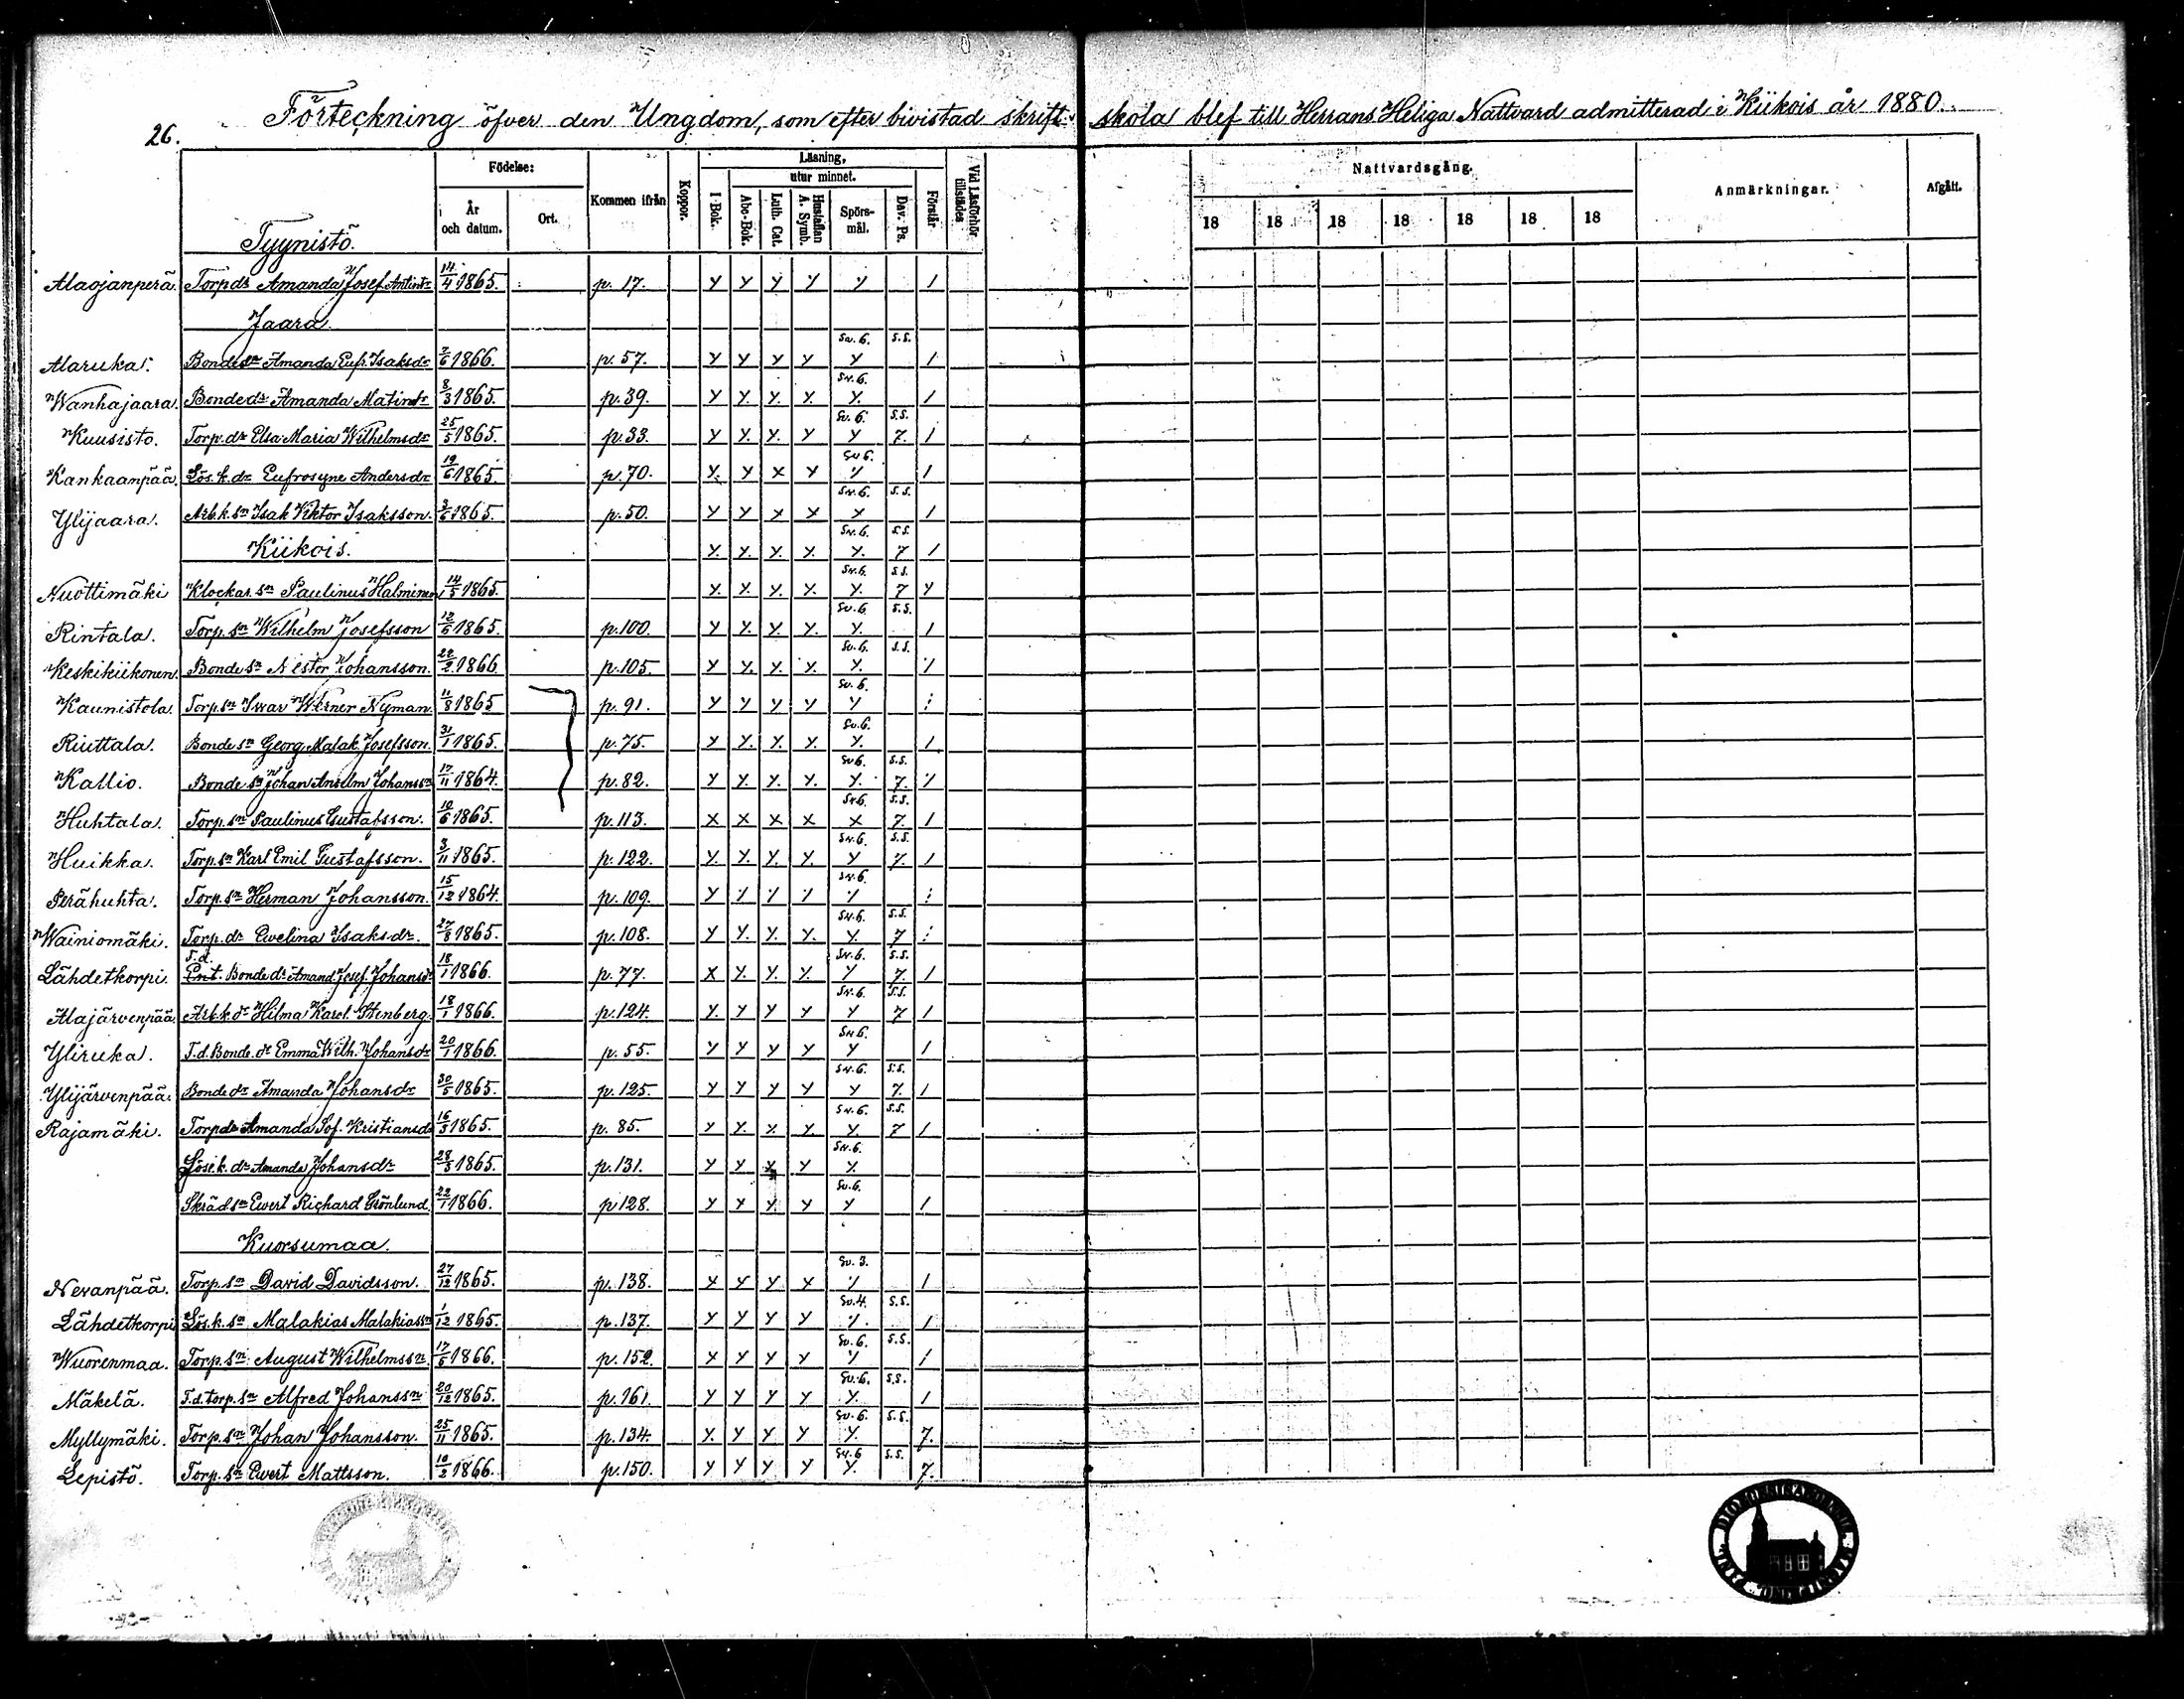 Förteckning öfver den Ungdom, som efter bivistad skrift- skola blef till Herrans Heliga Nattvard admitterad i Kiikois år 1880.
26.
Födelse: Kommen ifrån Koppor. Läsning, utur minnet. Förstår Vid Läsförhör tillstädes Nattvardsgång. Anmärkningar. Afgått.
År och datum. Ort. I Bok. Abc-Bok. Luth. Cat. Hustaflan A. Symb. Spörs-mål. Dav. Ps. 18 18 18 18 18 18 18
Tyynistö.
Alaojanperä. Torpdr Amanda Josef. Antindr 14/4 1865. p. 17. y y y y y 1
Jaara.
Sv. 6. s.s.
Alaruka. Bondedr Amanda Eufr. Isaksdr 7/6 1866. p. 57. y y y y y 1
Sv. 6.
Wanhajaara. Bondedr Amanda Matindr 8/3 1865. p. 39. y y. y. y. y. 1
Sv. 6. s.s.
Kuusisto. Torp. dr Elsa Maria Wilhelmsdr 25/5 1865. p. 33. y y. y. y y 7. 1
Sv 6.
Kankaanpää. Lös. k. dr Eufrosyne Andersdr 19/6 1865. p. 70. y. y x y y 1
Sv. 6. s.s.
Ylijaara. Arb. k. sn Isak Viktor Isaksson. 3/6 1865. p. 50. y y x x x 1
Sv. 6. s.s.
Kiikois. y. y. y. y. y. 7 1
Sv. 6. s.s.
Nuottimäki Klockar. sn Paulinus Halminen 14/5 1865. y. y. y. y. y. 7 y
Sv. 6. s.s.
Rintala. Torp. sn Wilhelm Josefsson 12/6 1865. p. 100. y y. y. y. y. 1
Sv. 6. s.s.
Keskikiikonen. Bonde sn Nestor Johansson. 22/2 1866. p. 105. y y. y. y. y. 1
Sv. 6.
Kaunistola. Torp. sn Iwar Werner Nyman. 11/8 1865 p. 91. y y y y y
Sv. 6.
Riuttala. Bonde sn Georg Malak. Josefsson. 31/1 1865. p. 75. y y. y. y. y. 1
Sv 6. s.s.
Kallio. Bonde sn Johan Anselm Johanssn 17/11 1864. p. 82. y y. y. y. y. 7. 1
Sv. 6. s.s.
Huhtala. Torp. sn Paulinus Gustafsson. 10/6 1865. p. 113. x x x x x 7. 1
Sv. 6. s.s.
Huikka. Torp. sn Karl Emil Gustafsson. 3/11 1865. p. 122. y. y. y. y. y 7. 1
Sv. 6.
Perähuhta. Torp. sn Herman Johansson. 15/12 1864. p. 109. y
Sv. 6. s.s.
Wainiomäki. Torp. dr Ewelina Isaksdr. 27/8 1865. p. 108. y y. y. y. y. 7
Sv. 6. s.s.
Lähdetkorpi. f.d. Bonde dr Amand. Josef. Johansdr 18/1 1866. p. 77. x y. y. y. y 7. 1
Sv. 6. s.s.
Alajärvenpää. Arb. k. dr Hilma Karol. Stenberg. 18/1 1866. p. 124. y. y y y y 7 1
Sv 6.
Yliruka. f. d. Bonde. dr Emma Wilh. Johansdr 20/1 1866. p. 55. y y y y y 1
Sv. 6. s.s.
Ylijärvenpää. Bonde dr Amanda Johansdr 30/5 1865. p. 125. y y y y y 7. 1
Sv. 6. s.s.
Rajamäki. Torpdr Amanda Sof. Kristiansdr 16/3 1865. p. 85. y y. y. y. y. 7 1
Sv. 6.
Lösk. dr Amanda Johansdr 28/3 1865. p. 131. y y y y y.
Sv. 6.
Skräd sn Ewert Richard Grönlund. 22/1 1866. p 128. y y y. y y 1
Kuorsumaa.
Sv. 3.
Nevanpää. Torp. sn David Davidsson. 27/12 1865. p. 138. y y y y y 1
Sv. 4. s.s.
Lähdetkorpi Lös. k. sn Malakias Malakiassn 1/12 1865. p. 137. y y y y y. 1
Sv. 6. s.s.
Wuorenmaa. Torp. sn August Wilhelmssn. 17/5 1866. p. 152. y y y y y 1
Sv. 6. s.s.
Mäkelä. f. d. torp. sn Alfred Johanssn 20/12 1865. p. 161. y y y y y. 1
Sv. 6. s.s.
Myllymäki. Torp. sn Johan Johansson. 25/11 1865. p. 134. y. y y y y. 7.
Sv. 6 s.s.
Lepistö. Torp. sn Ewert Mattsson. 10/2 1866. p. 150. y y y y y. 7.